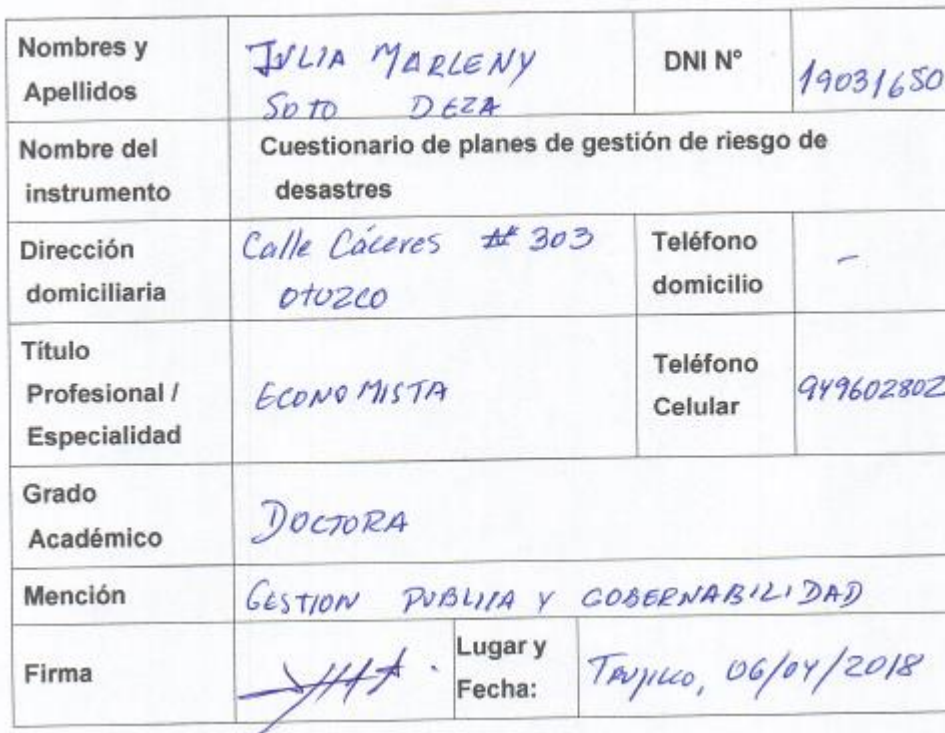 Nombres y Apellidos JULIA MARLENY SOTO DEZA DNI N° 19031650
Nombre del instrumento Cuestionario de planes de gestión de riesgo de desastres
Dirección domiciliaria Calle Cáceres # 303 Otuzco Teléfono domicilio -
Título Profesional / Especialidad ECONOMISTA Teléfono Celular 949602802
Grado Académico DOCTORA
Mención GESTION PUBLICA Y GOBERNABILIDAD
Firma Lugar y Fecha: Trujillo, 06/04/2018